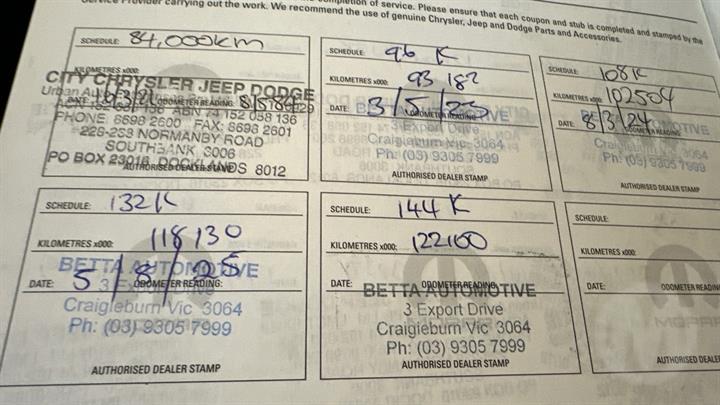 completion of service. Please ensure that each coupon and stub is completed and stamped by the
Service Provider carrying out the work. We recommend the use of genuine Chrysler, Jeep and Dodge Parts and Accessories.
SCHEDULE: 84,000km
KILOMETRES x000:
CITY CHRYSLER JEEP DODGE
ODOMETER READING:
ABN 74 152 058 136
PHONE: 8698 2600 FAX: 8698 2601
229-233 NORMANBY ROAD
SOUTHBANK, 3006
PO BOX 23016, DOCKLANDS 8012
AUTHORISED DEALER STAMP
SCHEDULE: 96 K
KILOMETRES x000: 93 182
DATE: 3/5/23
ODOMETER READING:
3 Export Drive
Craigieburn Vic 3064
Ph: (03) 9305 7999
AUTHORISED DEALER STAMP
SCHEDULE: 108K
KILOMETRES x000: 102504
DATE: 8/3/24
ODOMETER READING:
Ph: (03) 9305 7999
AUTHORISED DEALER STAMP
SCHEDULE: 132K
KILOMETRES x000: 118130
BETTA AUTOMOTIVE
DATE: 5/8/25
ODOMETER READING:
Craigieburn Vic 3064
Ph: (03) 9305 7999
AUTHORISED DEALER STAMP
SCHEDULE: 144 K
KILOMETRES x000: 122100
DATE:
ODOMETER READING:
BETTA AUTOMOTIVE
3 Export Drive
Craigieburn Vic 3064
Ph: (03) 9305 7999
AUTHORISED DEALER STAMP
SCHEDULE:
KILOMETRES x000:
DATE:
ODOMETER READIN
MOPAR
AUTHORISED DEALE